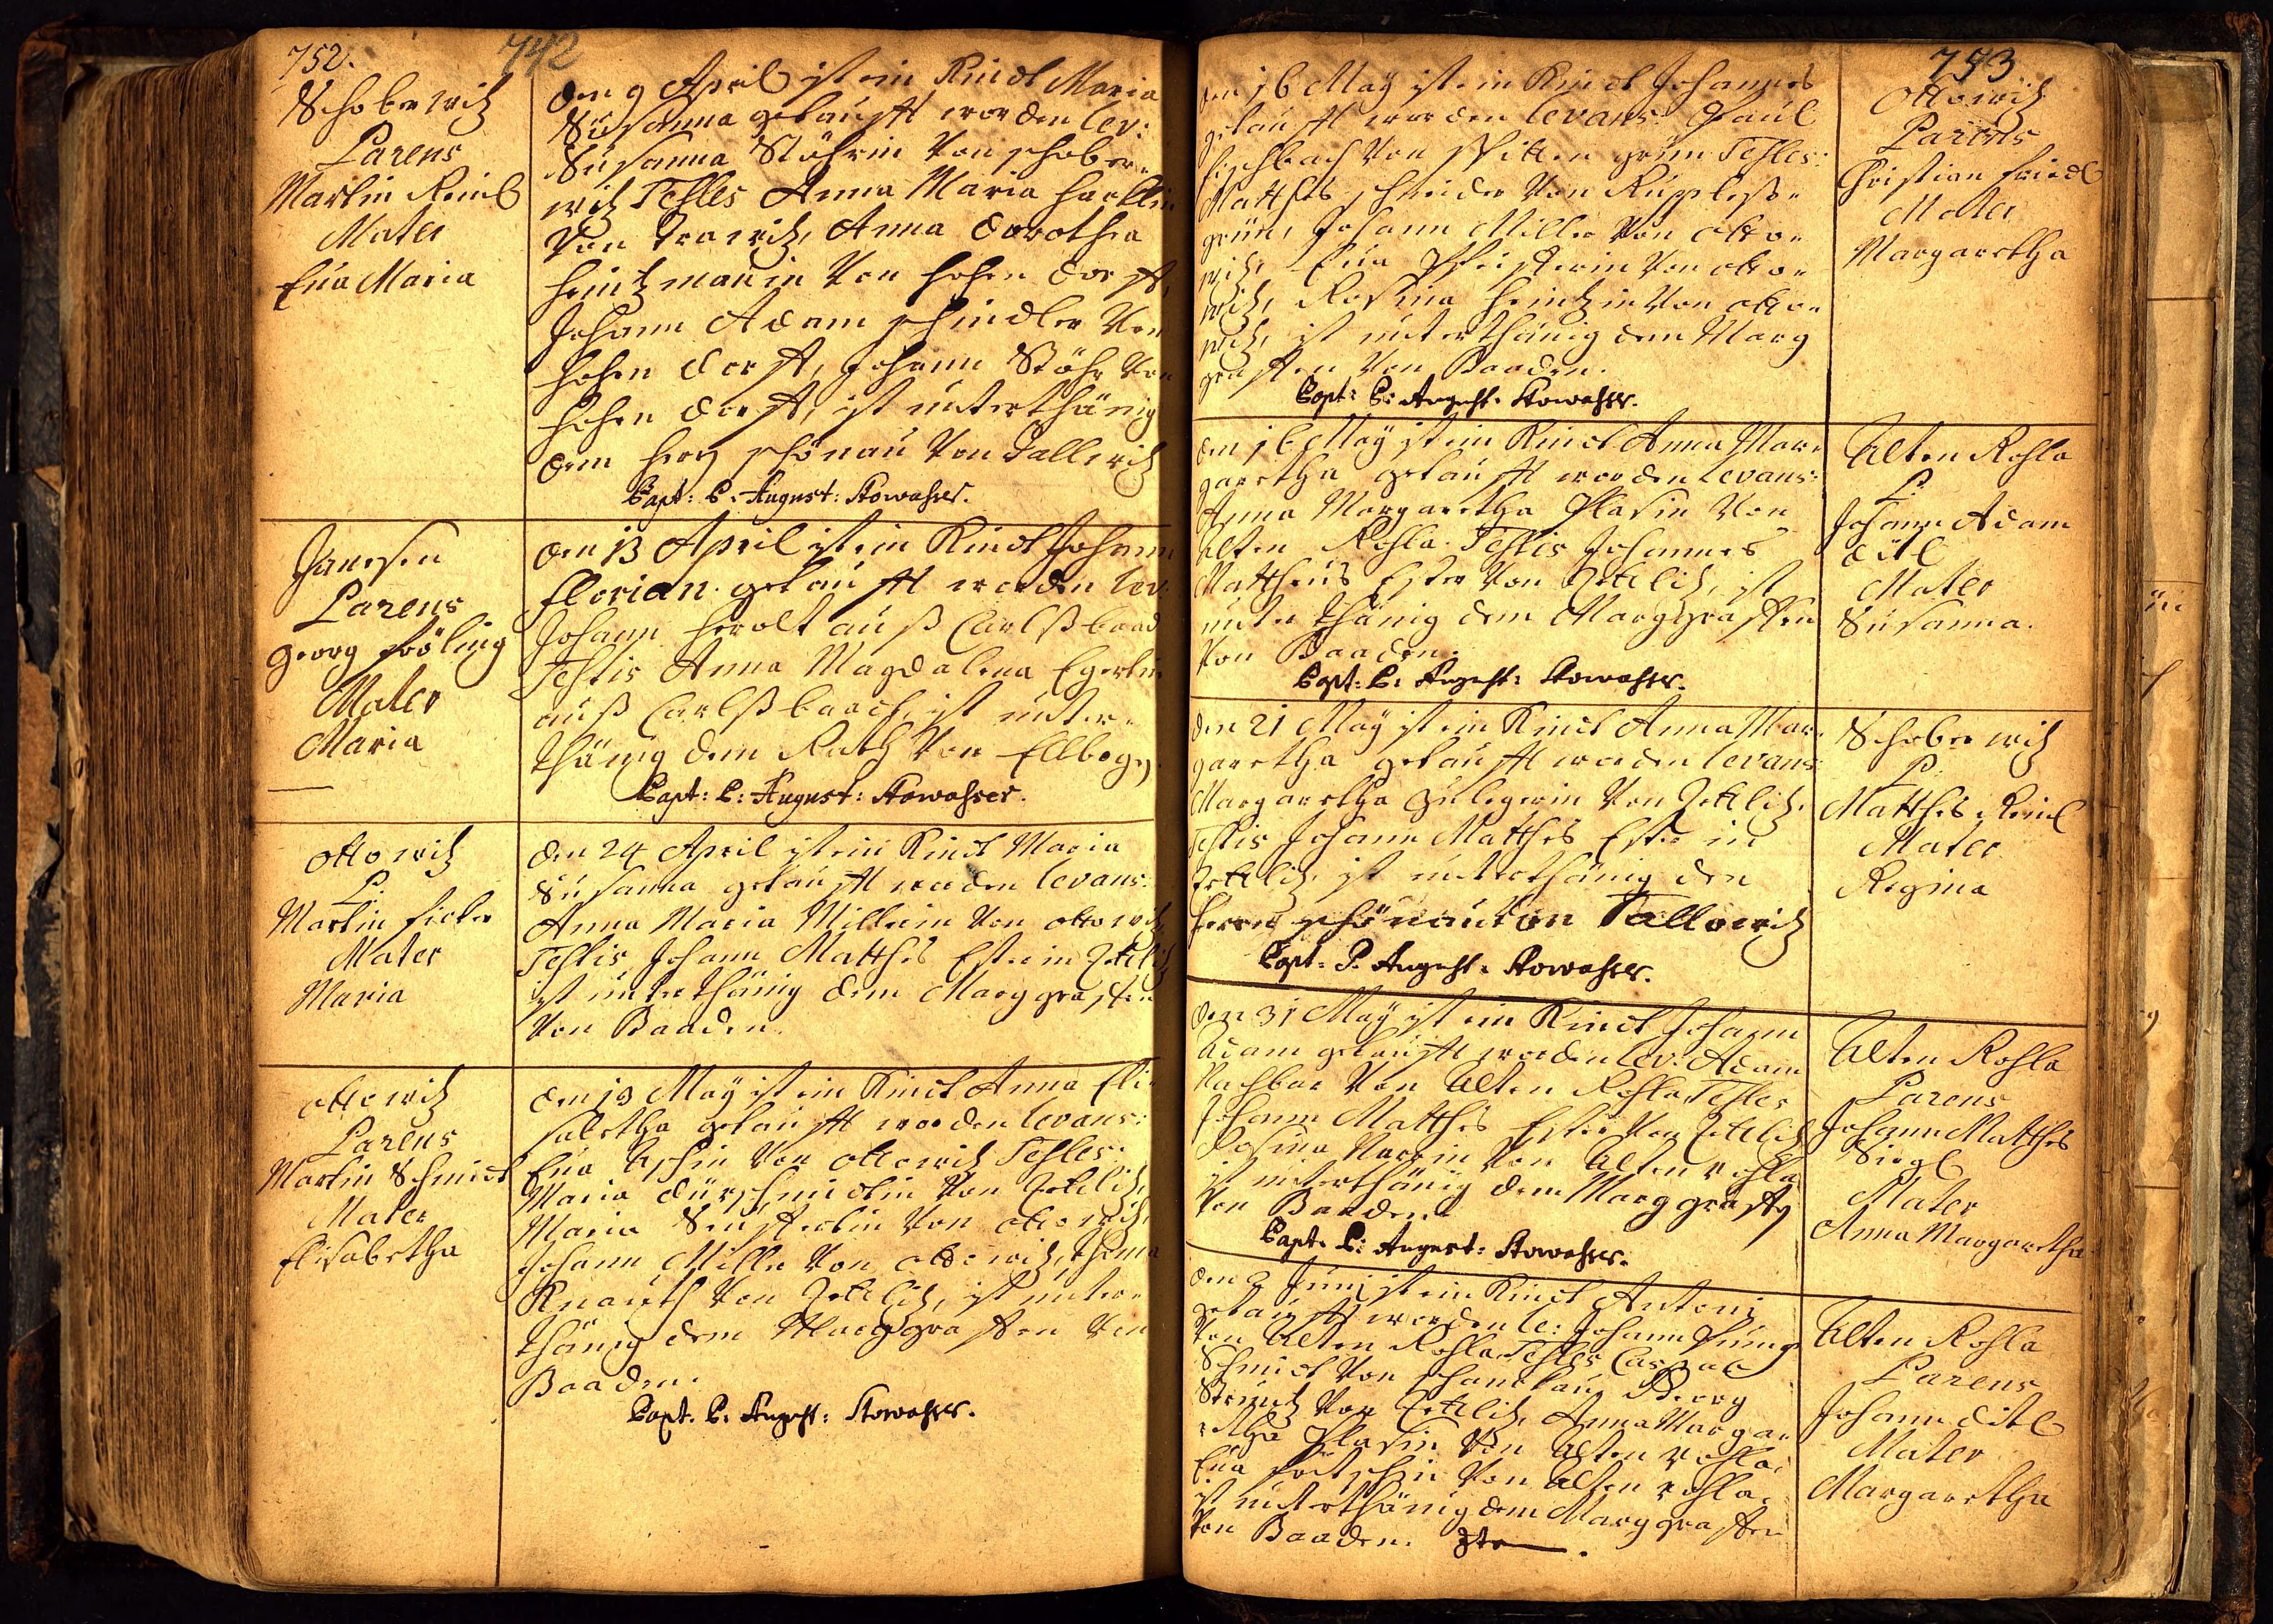 752.
742
Schoberwitz
Parens
Martin Reinl
Mater
Eva Maria
den 9 April ist ein Kindt Maria
Susanna getaufft worden lev:
Susanna Stöhrin von schober-
witz Testes Anna Maria
von Trawitz, Anna Dorothea
Heintzmanin von Hohen dorff,
Johann Adam schindler von
Hohen dorff, Johann Stöhr von
Hohen dorff, ist unterthänig
dem Herrn schönau von Tallewitz
Bapt: P. August: Stowasser.
Janesen
Parens
Georg
Mater
Maria
den 13 April ist ein Kindt Johann
Florian getaufft worden lev:
Johann Herolt auß Carlßbaad
Testis Anna Magdalena Egerlin
auß Carlßbaad, ist unter-
thänig dem Rath von Ellboge
Bapt: P: August: Stowasser.
ottowitz
P.
Martin
Mater
Maria
den 24 April ist ein Kindt Maria
Susanna getaufft worden levans:
Anna Maria Millerin von ottowitz
Testis Johann Matthes Ester in Zettlitz
ist unterthänig dem Marggraffen
von Baaden.
ottowitz
Parens
Martin Schmidt
Mater
Elisabetha
den 13 May ist ein Kindt Anna Eli-
sabetha getaufft worden levans:
Eva von ottowitz Testes:
Maria Dürschmidin von Zettlitz,
Maria von ottowitz,
Johann Miller von ottowitz,
Knauth von Zettlitz, ist unter-
thänig dem Marggraffen von
Baaden.
Bapt: P: August: Stowasser.
753
den 16 May ist ein Kindt Johannes
getaufft worden levans: Paul
Fischbach von grün Testes:
Matthes schneider von Rupplesß-
grün, Johann Miller von otto-
witz, Eva von otto-
witz, Rosina Heintzin von otto-
witz, ist unterthänig dem Marg
graffen von Baaden.
Bapt: P: August: Stowasser.
ottowitz
Parens
Christian Friedl
Mater
Margaretha
den 16 May ist ein Kindt Anna Mar-
garetha getaufft worden levans:
Anna Margaretha Plasin von
alten Rohla. Testis Johannes
Mattheus Ester von Zettlitz, ist
unterthänig dem Marggraffen
von Baaden.
Bapt: P: August: Stowasser.
Alten Rohla
P.
Johann Adam
Ditl
Mater
Susanna.
den 21 May ist ein Kindt Anna Mar-
garetha getaufft worden levans
Margaretha von Zettlitz.
Testis Johann Matthes Ester in
Zettlitz, ist unterthänig den
Herrn schönau von Tallowitz
Bapt: P. August: Stowasser.
Schoberwitz
P.
Matthes Reinl
Mater
Regina
den 31 May ist ein Kindt Johann
Adam getaufft worden lev: Adam
Nachbar von Alten Rohla, Testes
Johann Matthes Ester von Zettlitz
Rosina von Alten rohla
ist unterthänig dem Marggraffen
von Baaden.
Bapt: P: August: Stowasser.
Alten Rohla
Parens
Johann Matthes
Siegl
Mater
Anna Margaretha
den 2 Juni ist ein Kindt Antoni
getaufft worden le: Johann
von Alten Rohla, Testes Caspar
Schmidt von Georg
von Zettlitz, Anna Marga-
retha Plasin von Alten rohla,
Eva von Alten rohla,
ist unterthänig dem Marggraffen
von Baaden.
Alten Rohla
Parens
Johann Ditl
Mater
Margaretha